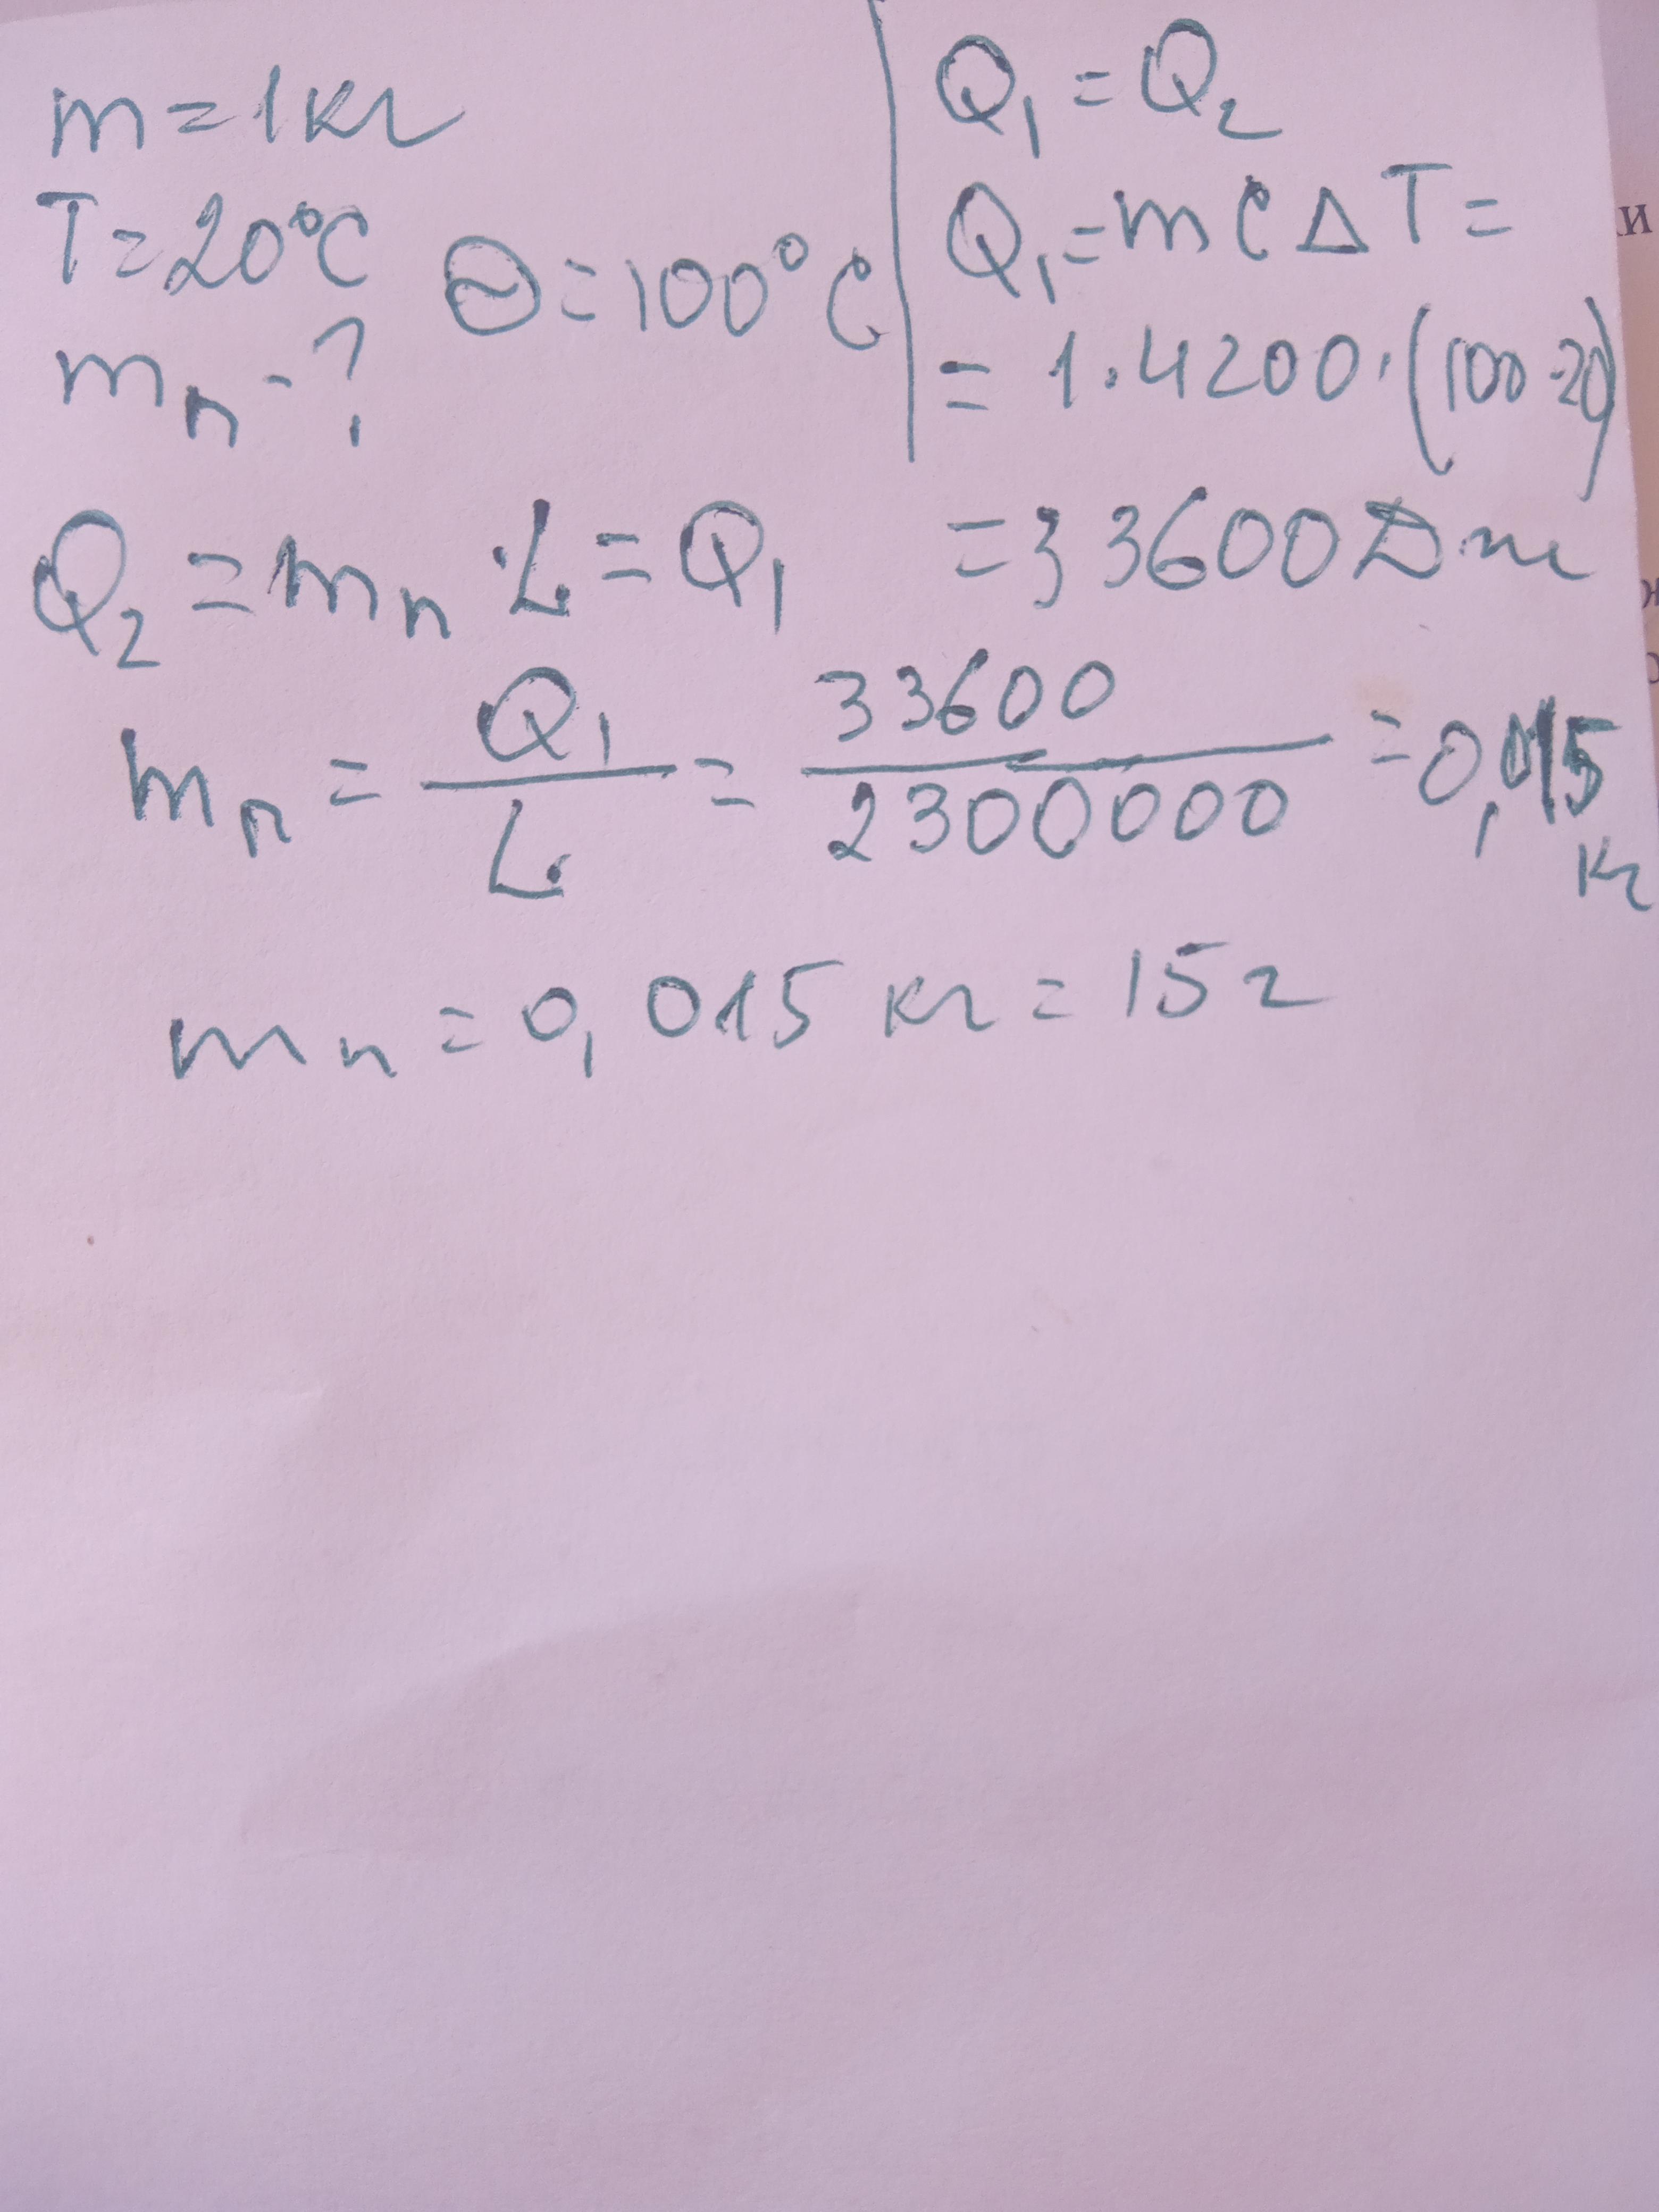 m = 1 кг
T = 20°C Θ = 100°C
mп - ?
Q₁ = Q₂
Q₁ = mCΔT =
= 1 · 4200 · (100 - 20)
= 33600 Дж
Q₂ = mп · L = Q₁
mп = Q₁ / L = 33600 / 2300000 = 0,015 кг
mп = 0,015 кг = 15 г